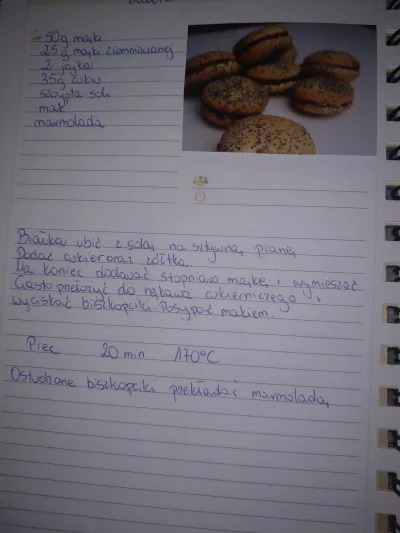 50g mąki
25g mąki ziemniaczanej
2 jajka
35g cukru
szczypta soli
mak
marmolada
Białka ubić z solą na sztywną pianę,
Dodać cukier oraz żółtka.
Na koniec dodawać stopniowo mąkę i wymieszać
Ciasto przełożyć do rękawa cukierniczego i
wyciskać biszkopciki. Posypać makiem.
Piec 20 min 170°C
Ostudzone biszkopciki przekładać marmoladą